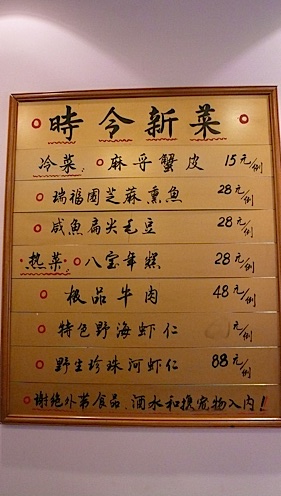 時今新菜
冷菜 麻孚蟹皮 15元/例
瑞福園芝蔴熏魚 28元/例
咸魚扁尖毛豆 28元/例
热菜 八宝年糕 28元/例
极品牛肉 48元/例
特色野海虾仁 元/例
野生珍珠河虾仁 88元/例
谢绝外带食品、酒水和携宠物入内!